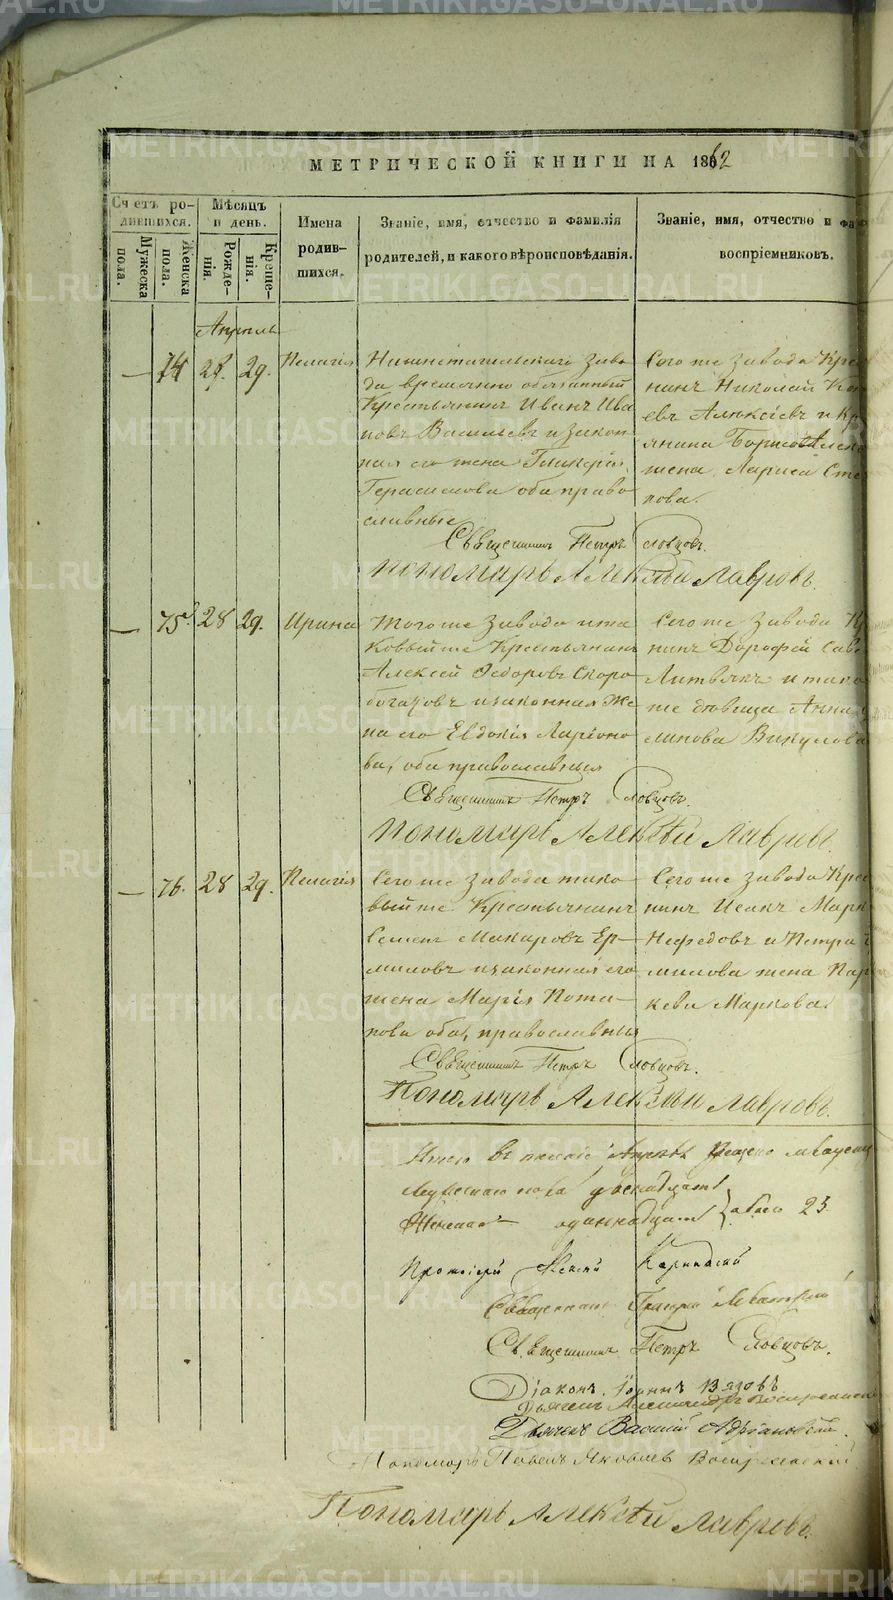 МЕТРИЧЕСКОЙ КНИГИ НА 1862
Счетъ родившихся.
Мужеска пола.
Женска пола.
Мѣсяцъ и день.
Рожденія.
Крещенія.
Имена родившихся.
Званіе, имя, отчество и фамилія родителей, и какого вѣроисповѣданія.
Званіе, имя, отчество и
воспріемниковъ.
Апрѣль
— 74 28. 29. Пелагія
Нижнетагильскаго Заво
да временно обязанный
Крестьянинъ Иванъ Ива
новъ Васильевъ и закон
ная его жена Гликерія
Герасимова оба право
славные
Сего же завода Кре
нинъ Николай
евъ Алексѣевъ и Кр
янина Бориса
жена Лариса Сте
нова.
Священникъ Петръ Словцовъ.
Пономарь Алексѣй Лавровъ.
— 75 28 29. Ирина
Того же Завода и та
ковый же Крестьянинъ
Алексей Ѳедоровъ Скоро
богатовъ и законная Же
на его Евдокія Ларіоно
ва, оба православныя
Сего же Завода Кр
нинъ Дорофей Сав
Литвякъ и тако
же дѣвица Анна
Викулова
Священникъ Петръ Словцовъ.
Пономарь Алексѣй Лавровъ.
— 76. 28 29. Пелагія
Сего же Завода тако
вый же Крестьянинъ
Семенъ Макаровъ Ер
миловъ и законная его
жена Марія Пота
пова оба, православныя
Сего же Завода Крес
нинъ Исакъ Марк
Нефедовъ и Петра
милова жена Пар
кева Маркова.
Священникъ Петръ Словцовъ.
Пономарь Алексѣй Лавровъ.
Итого въ Апрѣлѣ
Мужескаго пола двенадцать
Женскаго одиннадцать обоего 23.
Протоіерей Карпинскій
Священникъ
Священникъ Петръ Словцовъ.
Діаконъ Іоаннъ
Дьячекъ Александръ Воскресенскій
Дьячекъ Василій Адріановскій.
Пономарь Павелъ Яковлевъ Воскресенскій
Пономарь Алексѣй Лавровъ.
METRIKI.GASO-URAL.RU